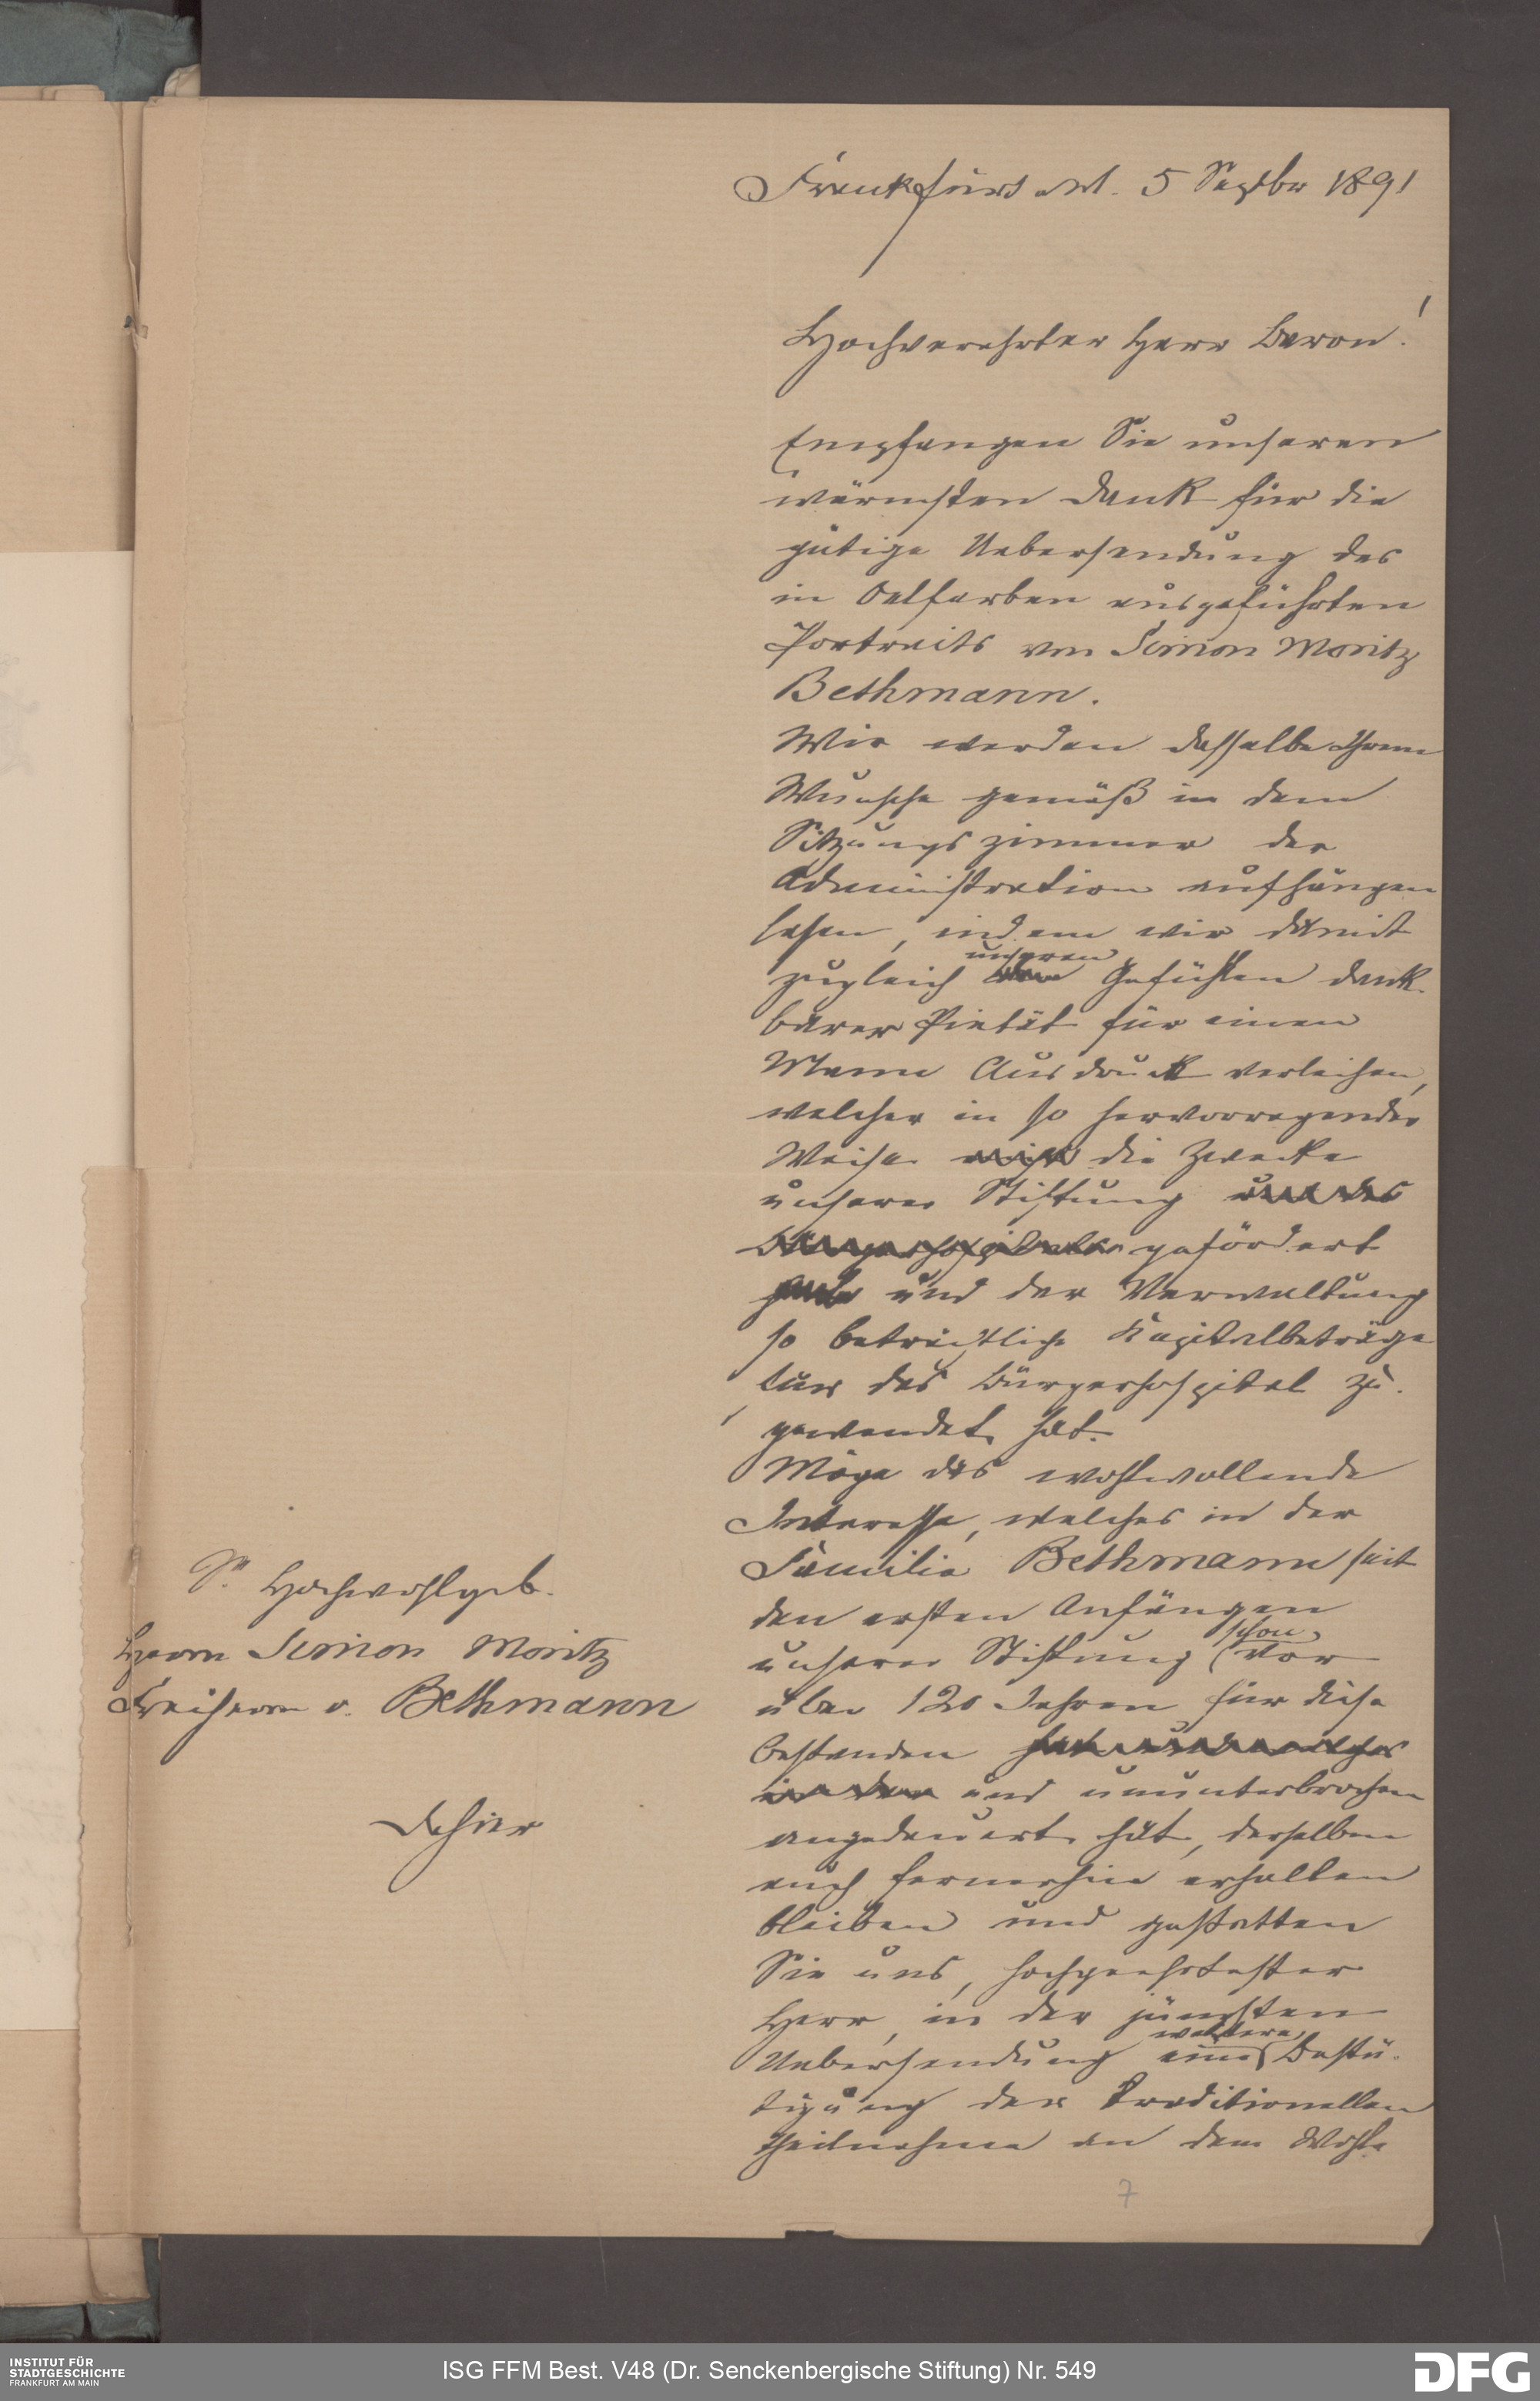 Frankfurt a/M. 5 Septbr 1891
Hochverehrter Herr Baron!
Empfangen Sie unseren
wärmsten Dank für die
gütige Uebersendung des
in Oelfarben ausgeführten
Portraits von Simon Moritz
Bethmann.
Wir werden dasselbe Ihrem
Wunsche gemäß in dem
Sitzungszimmer der
Administration aufhängen
lassen, indem wir damit
unseren
zugleich den Gefühlen dank-
barer Pietät für einen
Mann Ausdruck verleihen,
welcher in so hervorragender
Weise die Zwecke
unserer Stiftung und des
Bürgerhospitals gefördert
hat und der Verwaltung
so beträchtliche Kapitalbeträge
für das Bürgerhospital zu-
gewendet hat.
Möge das wohlwollende
Interesse, welches in der
Familie Bethmann seit
den ersten Anfängen
schon
unserer Stiftung vor
über 120 Jahren für diese
bestanden hat und welches
in der und ununterbrochen
angedauert hat, derselben
auch fernerhin erhalten
bleiben und gestatten
Sie uns, hochgeehrtester
Herr, in der jüngsten
weitere
Uebersendung eine Bestä-
tigung der traditionellen
Theilnahme an dem Wohle
Sr. Hochwohlgeb.
Herrn Simon Moritz
Freiherrn v. Bethmann
dahier
7
INSTITUT FÜR
STADTGESCHICHTE
FRANKFURT AM MAIN
ISG FFM Best. V48 (Dr. Senckenbergische Stiftung) Nr. 549
DFG